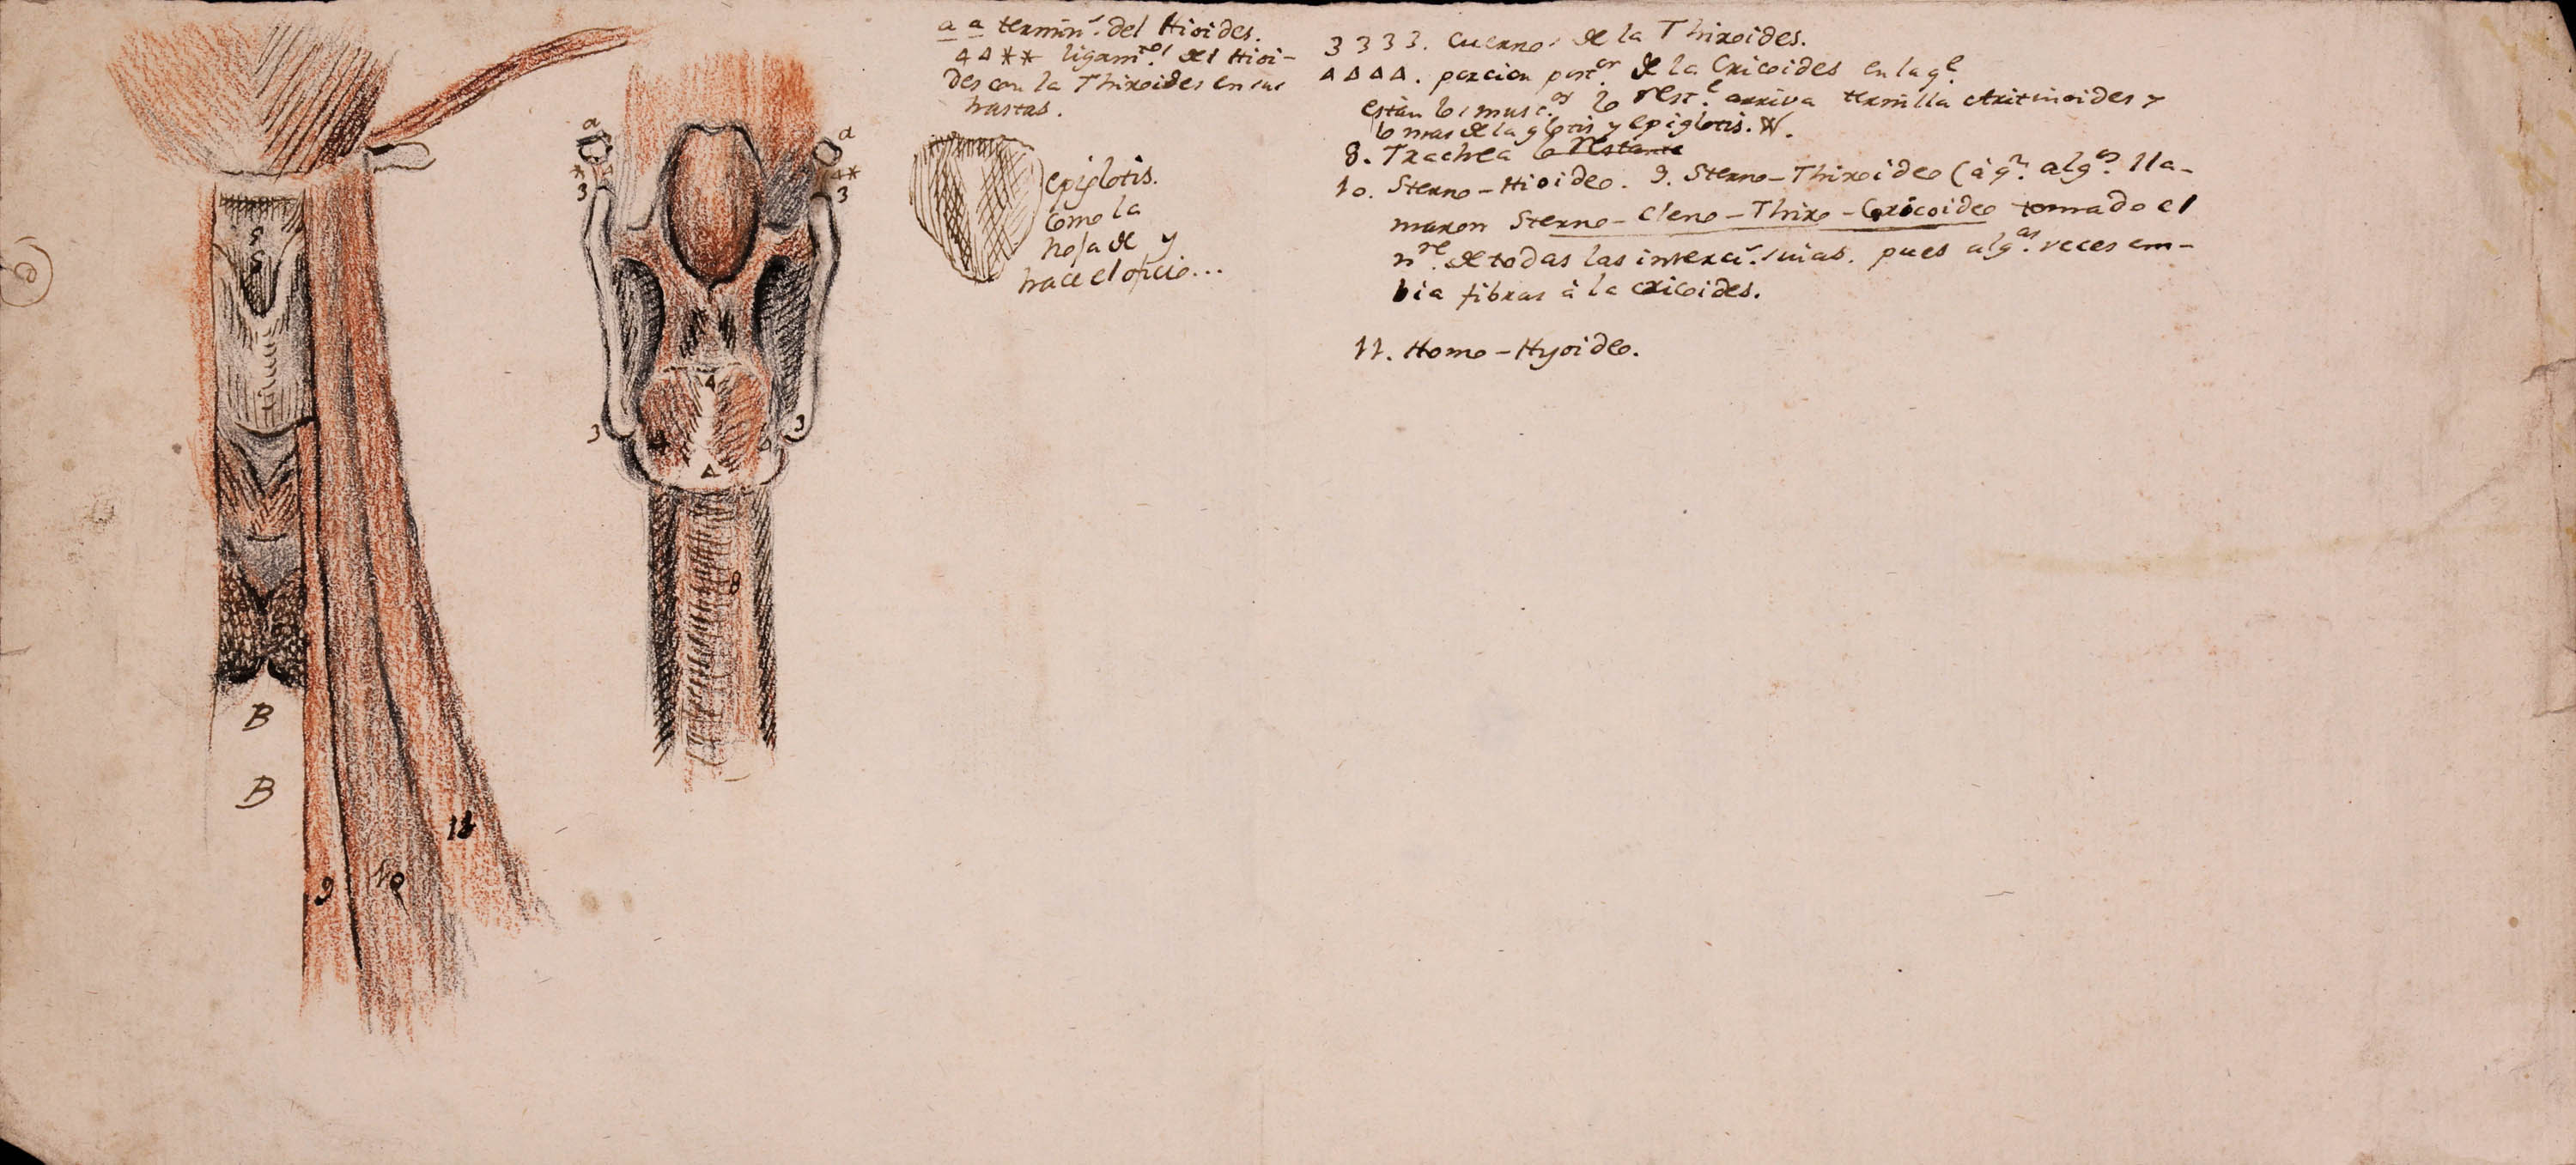 a a termin.ˢ del Hioides.
4 4 ** ligam.ᵗᵒˢ del Hioi-
des con la Thiroides en sus
hastas.
epiglotis.
como la
hoja de y
hace el oficio...
3 3 3 3. Cuernos de la Thiroides.
Δ Δ Δ Δ. porcion post.ᵒʳ de la Cricoides en la q.ᵉ
están los musc.ᵒˢ lo rest.ᵉ arriva ternilla Aritinoides y
lo mas de la glotis y epiglotis.
8. Trachea lo restante
10. Sterno-Hioideo. 9. Sterno-Thiroideo (à q.ⁿ alg.ᵒˢ lla-
maron Sterno-Cleno-Thiro-Cricoideo tomado el
n.ʳᵉ de todas las inserci.ˢ suias. pues alg.ᵃˢ veces em-
bia fibras à la cricoides.
11. Homo-Hyoideo.
a
a
*
3
4*
3
3
3
Δ
Δ
Δ
Δ
8
B
B
9
10
11